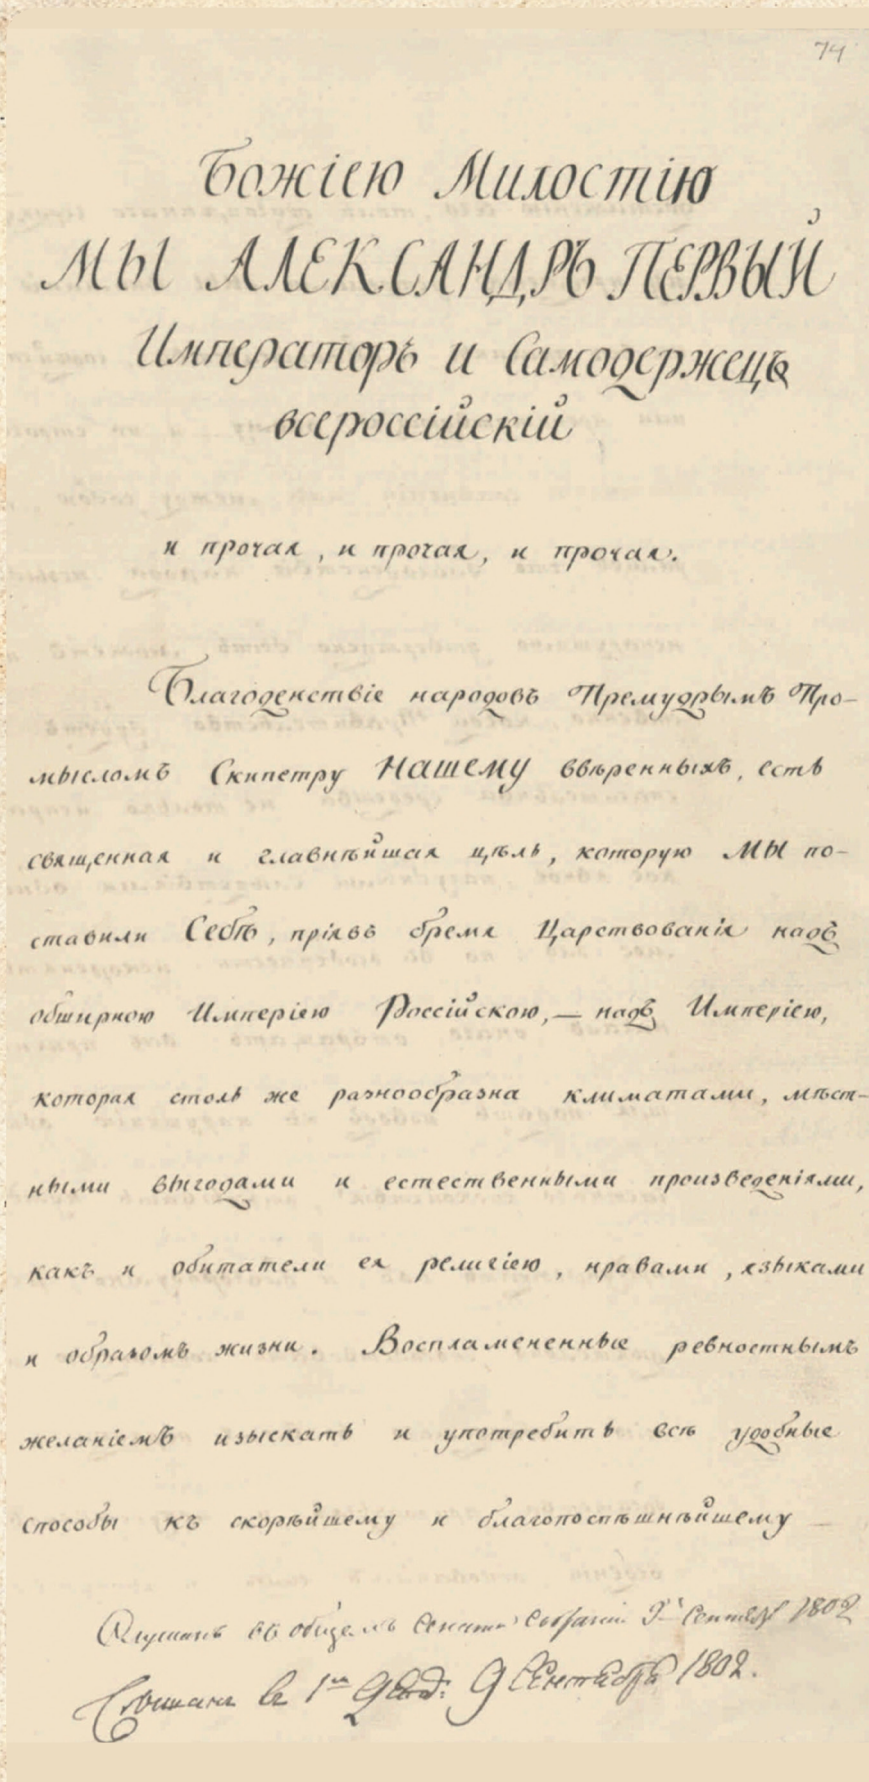 74
Божіею Милостію
МЫ АЛЕКСАНДРЪ ПЕРВЫЙ
Императоръ и Самодержецъ
всероссійскій
и прочая, и прочая, и прочая.
Благоденствіе народовъ Премудрымъ Про-
мысломъ Скипетру НАШЕМУ ввѣренныхъ, есть
священная и главнѣйшая цѣль, которую МЫ по-
ставили Себѣ, пріявъ бремя Царствованія надъ
обширною Имперіею Россійскою, — надъ Имперіею,
которая столь же разнообразна климатами, мѣст-
ными выгодами и естественными произведеніями,
какъ и обитатели ея религіею, нравами, языками
и образомъ жизни. Воспламененные ревностнымъ
желаніемъ изыскать и употребить всѣ удобные
способы къ скорѣйшему и благопоспѣшнѣйшему
Слушанъ въ общемъ Сената Собраніи 9 Сентября 1802
Слушанъ въ 1 9 Сентября 1802.